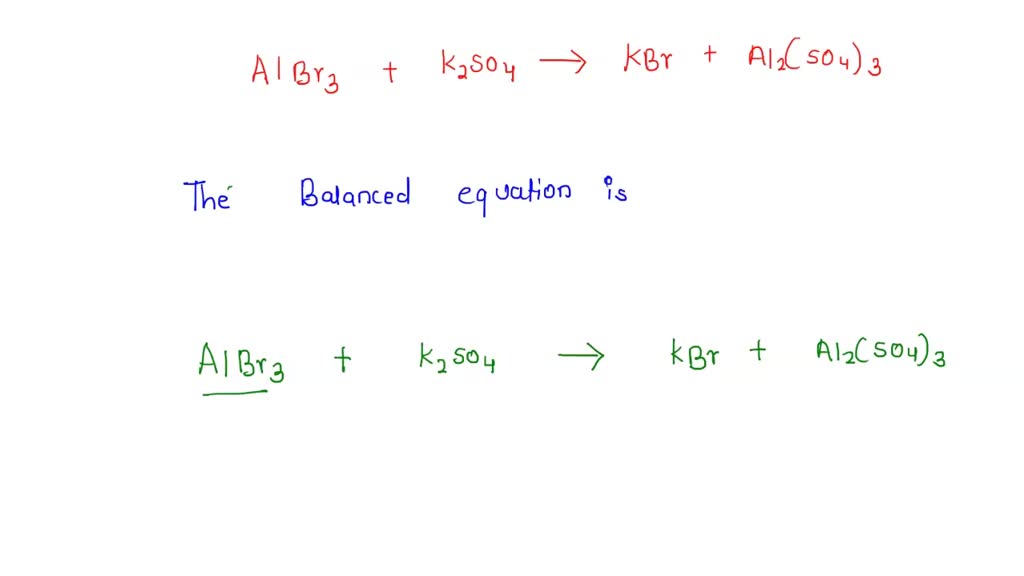 AlBr₃ + K₂SO₄ → KBr + Al₂(SO₄)₃
The Balanced equation is
AlBr₃ + K₂SO₄ → KBr + Al₂(SO₄)₃